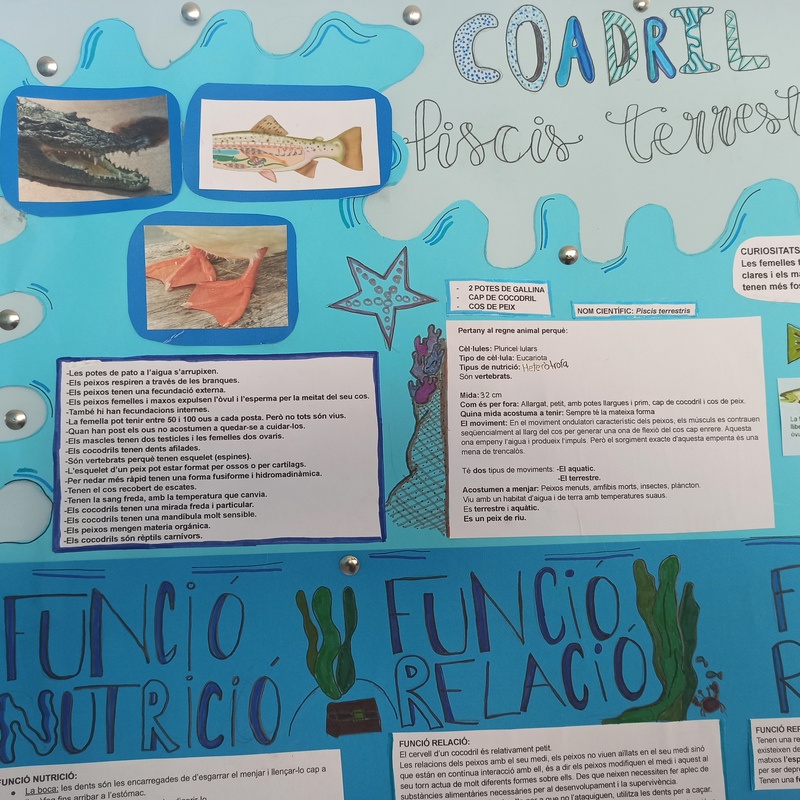 COADRIL
Piscis terrest
- 2 POTES DE GALLINA
- CAP DE COCODRIL
- COS DE PEIX
NOM CIENTÍFIC: Piscis terrestris
CURIOSITATS
Les femelles t
clares i els ma
tenen més fos
Pertany al regne animal perquè:
Cèl·lules: Pluricel·lulars
Tipo de cèl·lula: Eucariota
Tipus de nutrició: Heteròtrofa
Són vertebrats.
Mida: 32 cm
Com és per fora: Allargat, petit, amb potes llargues i prim, cap de cocodril i cos de peix.
Quina mida acostuma a tenir: Sempre té la mateixa forma
El moviment: En el moviment ondulatori característic dels peixos, els músculs es contrauen
seqüencialment al llarg del cos per generar una ona de flexió del cap cap enrere. Aquesta
ona empeny l'aigua i produeix l'impuls. Però el sorgiment exacte d'aquesta empenta és una
mena de trencalòs.
Té dos tipus de moviments: -El aquatic.
-El terrestre.
Acostumen a menjar: Peixos menuts, amfibis morts, insectes, plàncton.
Viu amb un habitat d'aigua i de terra amb temperatures suaus.
Es terrestre i aquàtic.
Es un peix de riu.
-Les potes de pato a l'aigua s'arrupixen.
-Els peixos respiren a través de les branques.
-Els peixos tenen una fecundació externa.
-Els peixos femelles i maxos expulsen l'òvul i l'esperma per la meitat del seu cos.
-També hi han fecundacions internes.
-La femella pot tenir entre 50 i 100 ous a cada posta. Però no tots són vius.
-Quan han post els ous no acostumen a quedar-se a cuidar-los.
-Els mascles tenen dos testicles i les femelles dos ovaris.
-Els cocodrils tenen dents afilades.
-Són vertebrats perquè tenen esquelet (espines).
-L'esquelet d'un peix pot estar format per ossos o per cartilags.
-Per nedar més ràpid tenen una forma fusiforme i hidromadinàmica.
-Tenen el cos recobert de escates.
-Tenen la sang freda, amb la temperatura que canvia.
-Els cocodrils tenen una mirada freda i particular.
-Els cocodrils tenen una mandibula molt sensible.
-Els peixos mengen materia orgànica.
-Els cocodrils són rèptils carnívors.
FUNCIÓ
NUTRICIÓ
FUNCIÓ
RELACIÓ
F
R
FUNCIÓ NUTRICIÓ:
La boca: les dents són les encarregades de d'esgarrar el menjar i llençar-lo cap a
fins arribar a l'estómac.
FUNCIÓ RELACIÓ:
El cervell d'un cocodril és relativament petit.
Les relacions dels peixos amb el seu medi, els peixos no viuen aïllats en el seu medi sinó
que están en continua interacció amb ell, és a dir els peixos modifiquen el medi i aquest al
seu torn actua de molt diferents formes sobre ells. Des que neixen necessiten fer aplec de
substàncies alimentàries necessàries per al desenvolupament i la supervivència.
a que no l'ataquiguen, utilitza les dents per a caçar.
FUNCIÓ REP
Tenen una re
existeixen de
matxos l'esp
per ser dispe
Tenen una f